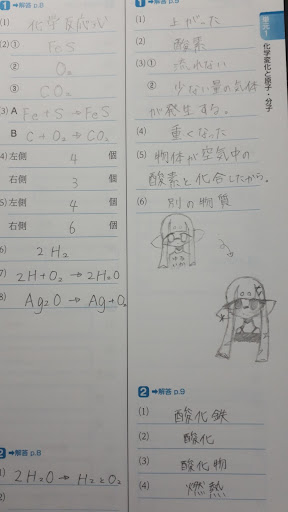 1 ➡解答 p.8
(1) 化学反応式
(2)① FeS
② O₂
③ CO₂
(3) A Fe+S→FeS
B C+O₂→CO₂
4)左側 4 個
右側 3 個
5)左側 4 個
右側 6 個
6) 2H₂
7) 2H+O₂→2H₂O
8) Ag₂O→Ag+O₂
2 ➡解答 p.8
1) 2H₂O→H₂+O₂
2)
1 ➡解答 p.9
(1) 上がった
(2) 酸素
(3)① 流れない
② 少ない量の気体
が発生する。
(4) 重くなった
(5) 物体が空気中の
酸素と化合したから。
(6) 別の物質
2 ➡解答 p.9
(1) 酸化鉄
(2) 酸化
(3) 酸化物
(4) 燃熱
単元1 化学変化と原子・分子